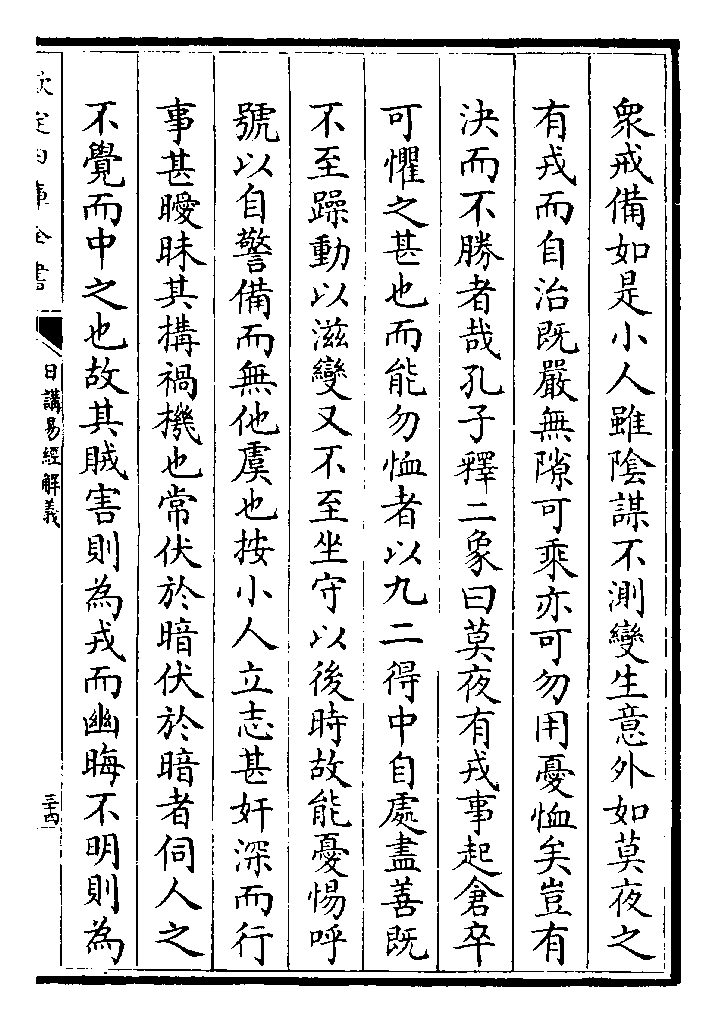 衆戒備如是小人雖隂謀不測變生意外如莫夜之
有戎而自治既嚴無隙可乘亦可勿用憂恤矣豈有
決而不勝者哉孔子釋二象曰莫夜有戎事起倉卒
可懼之甚也而能勿恤者以九二得中自處盡善既
不至躁動以滋變又不至坐守以後時故能憂惕呼
號以自警備而無他虞也按小人立志甚奸深而行
事甚曖昧其搆禍機也常伏於暗伏於暗者伺人之
不覺而中之也故其賊害則為戎而幽晦不明則為
欽定四庫全書
日講易經解義
三十四